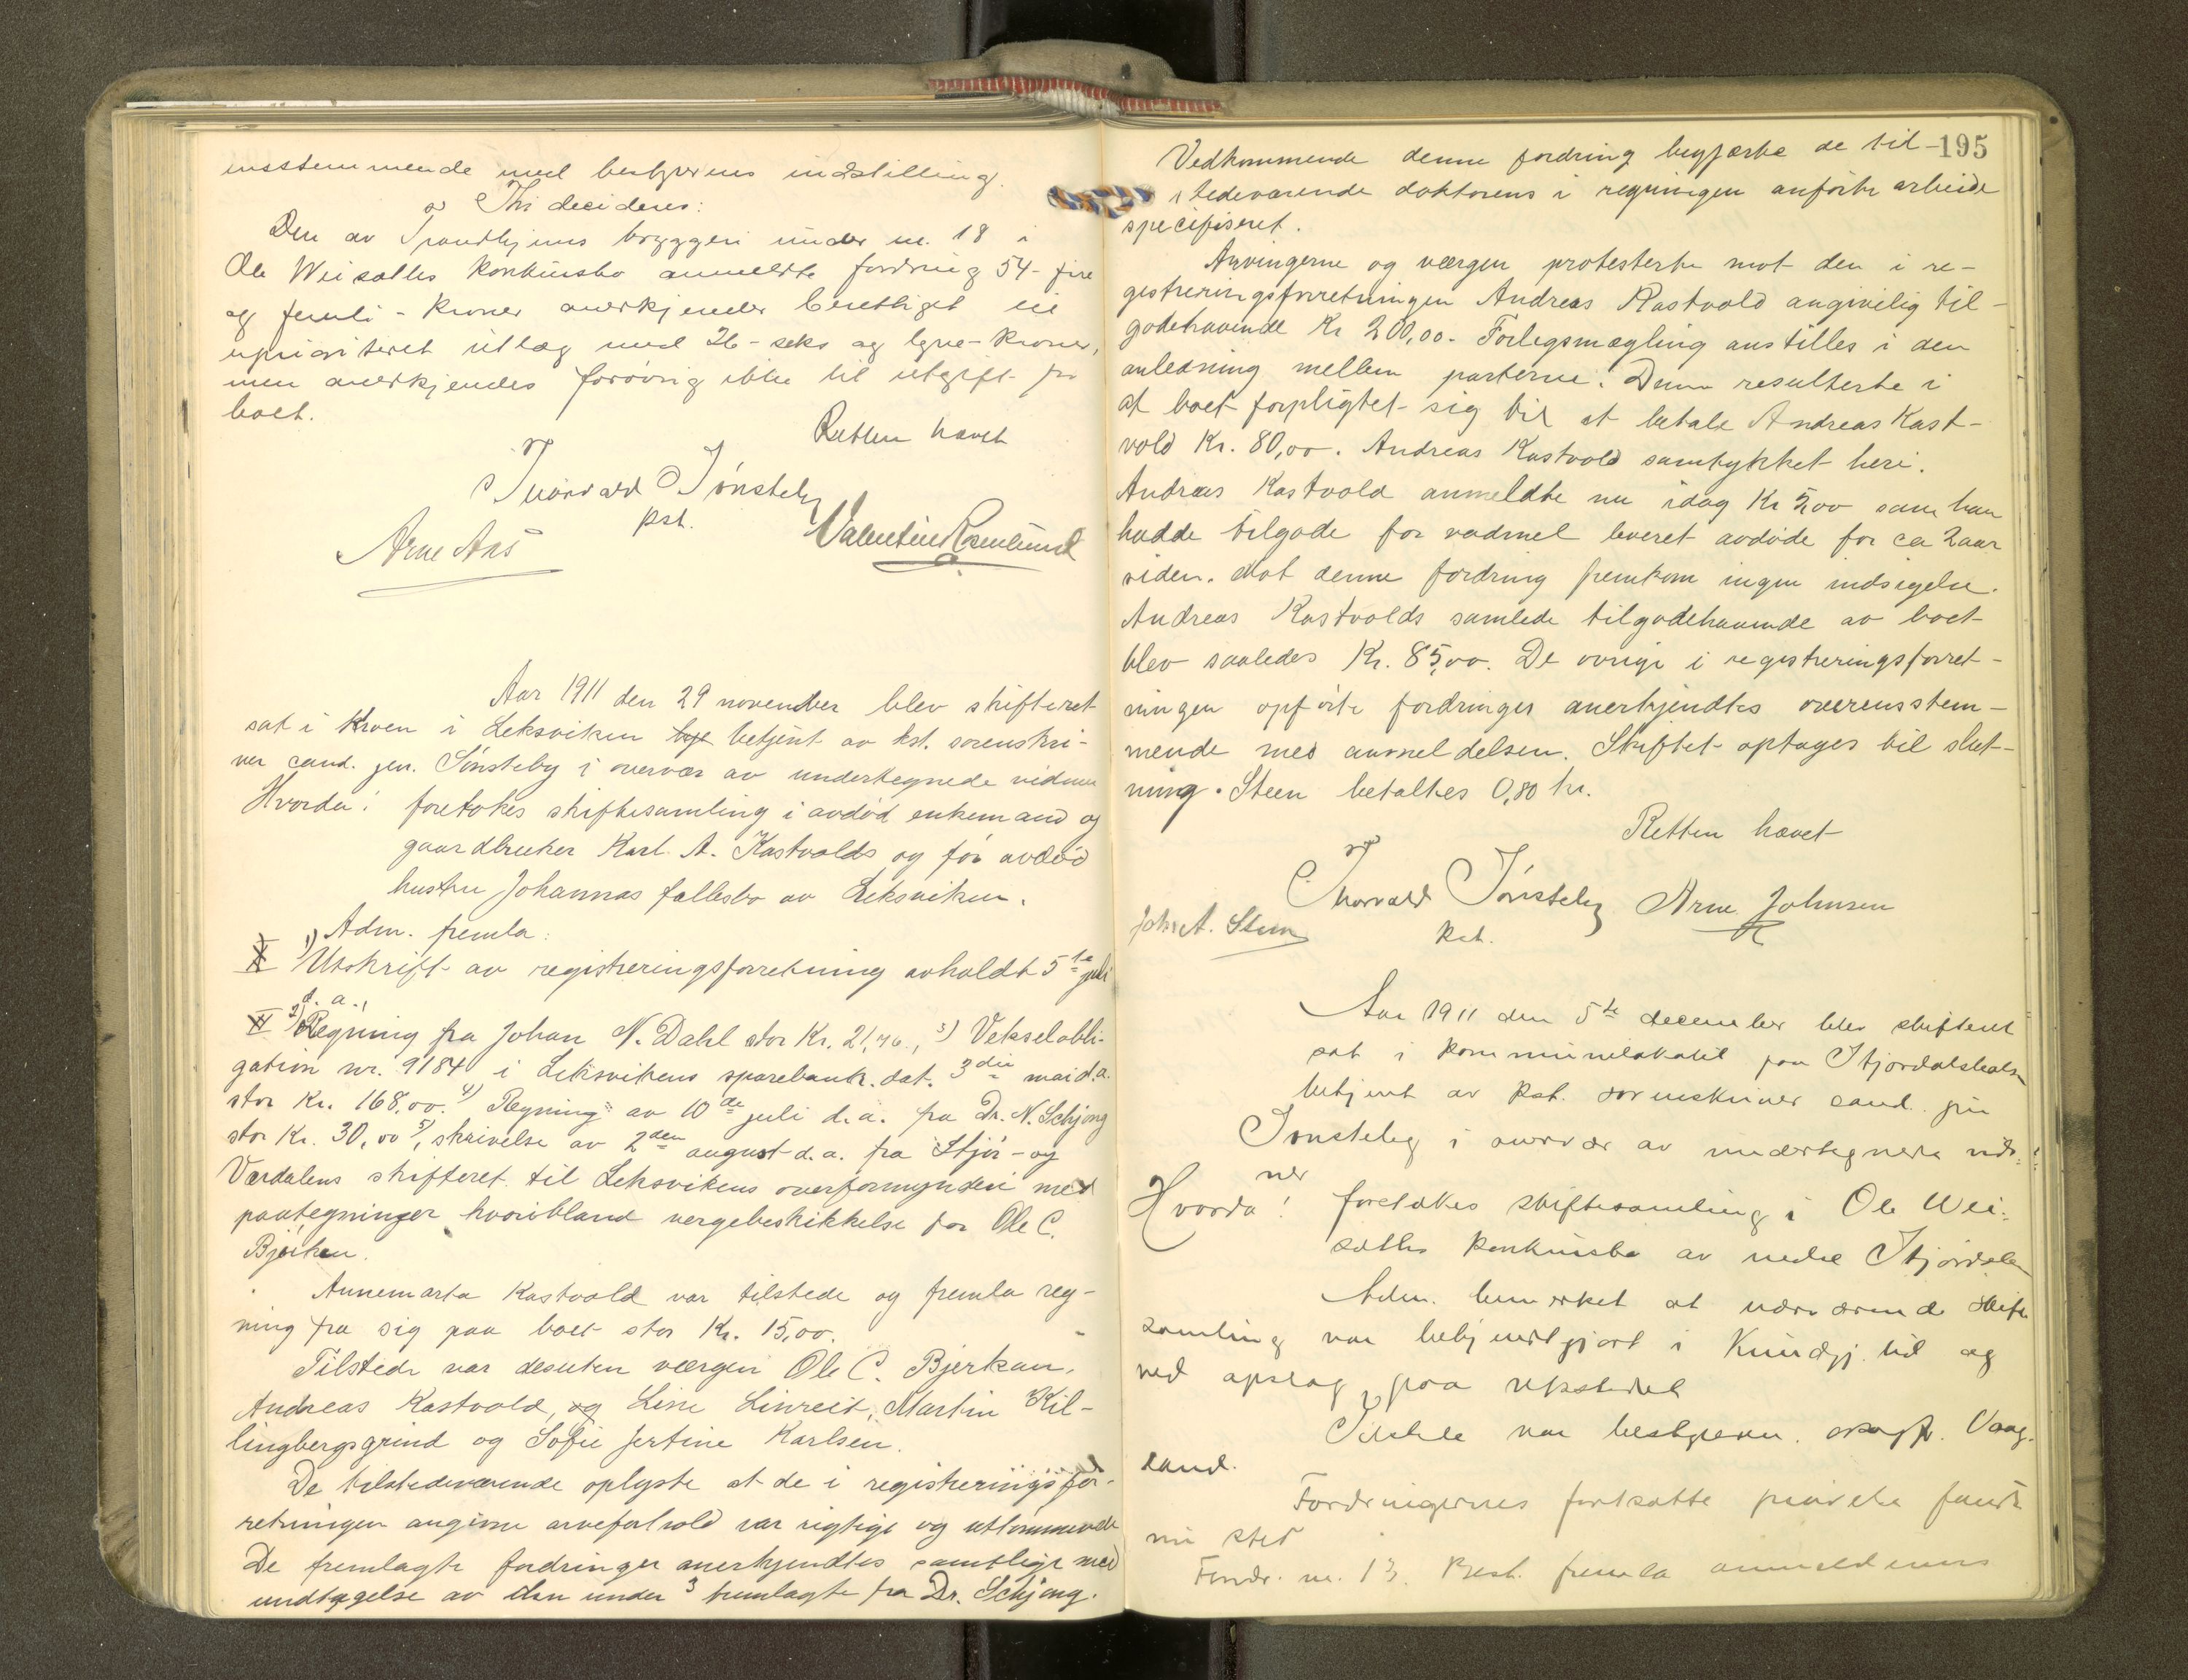 ensstemmende med bestyrerens indstilling.
Thi decideres:
Den av Trondhjems bryggeri under nr. 18 i
Ole Weisaltes konkursbo anmeldte fordring 54 - fire
og femti - kroner anerkjendes berettiget til
uprioritert utlæg med 26 - seks og tyve - kroner,
men anerkjendes forøvrig ikke til utgift for
boet.
Retten hævet
Thorvald Tønsteby
kst.
Arne Aas
Valentin Rosenlund
Aar 1911 den 29 november blev skifteret
sat i Kroen i Leksviken betjent av kst. sorenskri-
ver cand. jur. Tønsteby i overvær av undertegnede vidner
Hvorda! foretokes skiftesamling i avdød enkemand og
gaardbruker Karl A. Kastvolds og før avdød
hustru Johannas fællesbo av Leksviken.
Adm. fremla:
1) Utskrift av registreringsforretning avholdt 5te juli
d. a.,
2) Regning fra Johan N. Dahl stor Kr. 21,76., 3) Vekselobli-
gation nr. 9184 i Leksvikens sparebank. dat. 3die mai d.a.
stor Kr. 168,00. 4) Regning av 10de juli d.a. fra Dr. N. Schjong
stor Kr. 30,00 5), skrivelse av 2den august d.a. fra Stjør- og
Værdalens skifteret til Leksvikens overformynderi med
paategninger hvoriblandt vergebeskikkelse for Ole C.
Bjerkan.
Annemarta Kastvold var tilstede og fremla reg-
ning fra sig paa boet stor Kr. 15,00.
Tilstede var desuten værgen Ole C. Bjerkan,
Andreas Kastvold, og Line Linreit, Martin Kil-
lingbergsgrind og Sofie Jertine Karlsen.
De tilstedeværende oplyste at de i registreringsfor-
retningen angivne arveforhold var rigtige og uttømmende
De fremlagte fordringer anerkjendtes samtlige med
undtagelse av den under 3 fremlagte fra Dr. Schjong.
195
Vedkommende denne fordring begjærte de til-
stedeværende doktorens i regningen anførte arbeide
specifiseret.
Arvingerne og værgen protesterte mot den i re-
gistreringsforretningen Andreas Kastvold angivelig til-
godehavende Kr 200,00. Forligsmægling anstilles i den
anledning mellem parterne. Denne resulterte i
at boet forpligtet sig til at betale Andreas Kast-
vold Kr. 80,00. Andreas Kastvold samtykket heri.
Andreas Kastvold anmeldte nu idag Kr 5,00 som han
hadde tilgode for vadmel leveret avdøde for ca 2 aar
siden. Mot denne fordring fremkom ingen indsigelse.
Andreas Kastvolds samlede tilgodehavende av boet
blev saaledes Kr. 85,00. De øvrige i registreringsforret-
ningen opførte fordringer anerkjendtes overensstem-
mende med anmeldelsen. Skiftet optages til slut-
ning. Steen betaltes 0,80 kr.
Retten hævet
Thorvald Tønsteby
kst.
Arne Johnsen
Joh. A. Steen
Aar 1911 den 5te december blev skifteret
sat i kommunelokalet paa Stjørdalshalsen
betjent av kst. sorenskriver cand. jur
Tønsteby i overvær av undertegnede vid-
ner
Hvorda! foretokes skiftesamling i Ole Wei-
saltes konkursbo av nedre Stjørdalen
Adm. bemerket at nærværende skifte
samling var bekjendtgjort i Kundgj. tid og
ved opslag paa rettsstedet
Tilstede var bestyreren, Vaag-
land.
Fordringernes fortsatte prøvelse fandt
nu sted
Fordr. nr. 13. Best. fremla anmeldernes